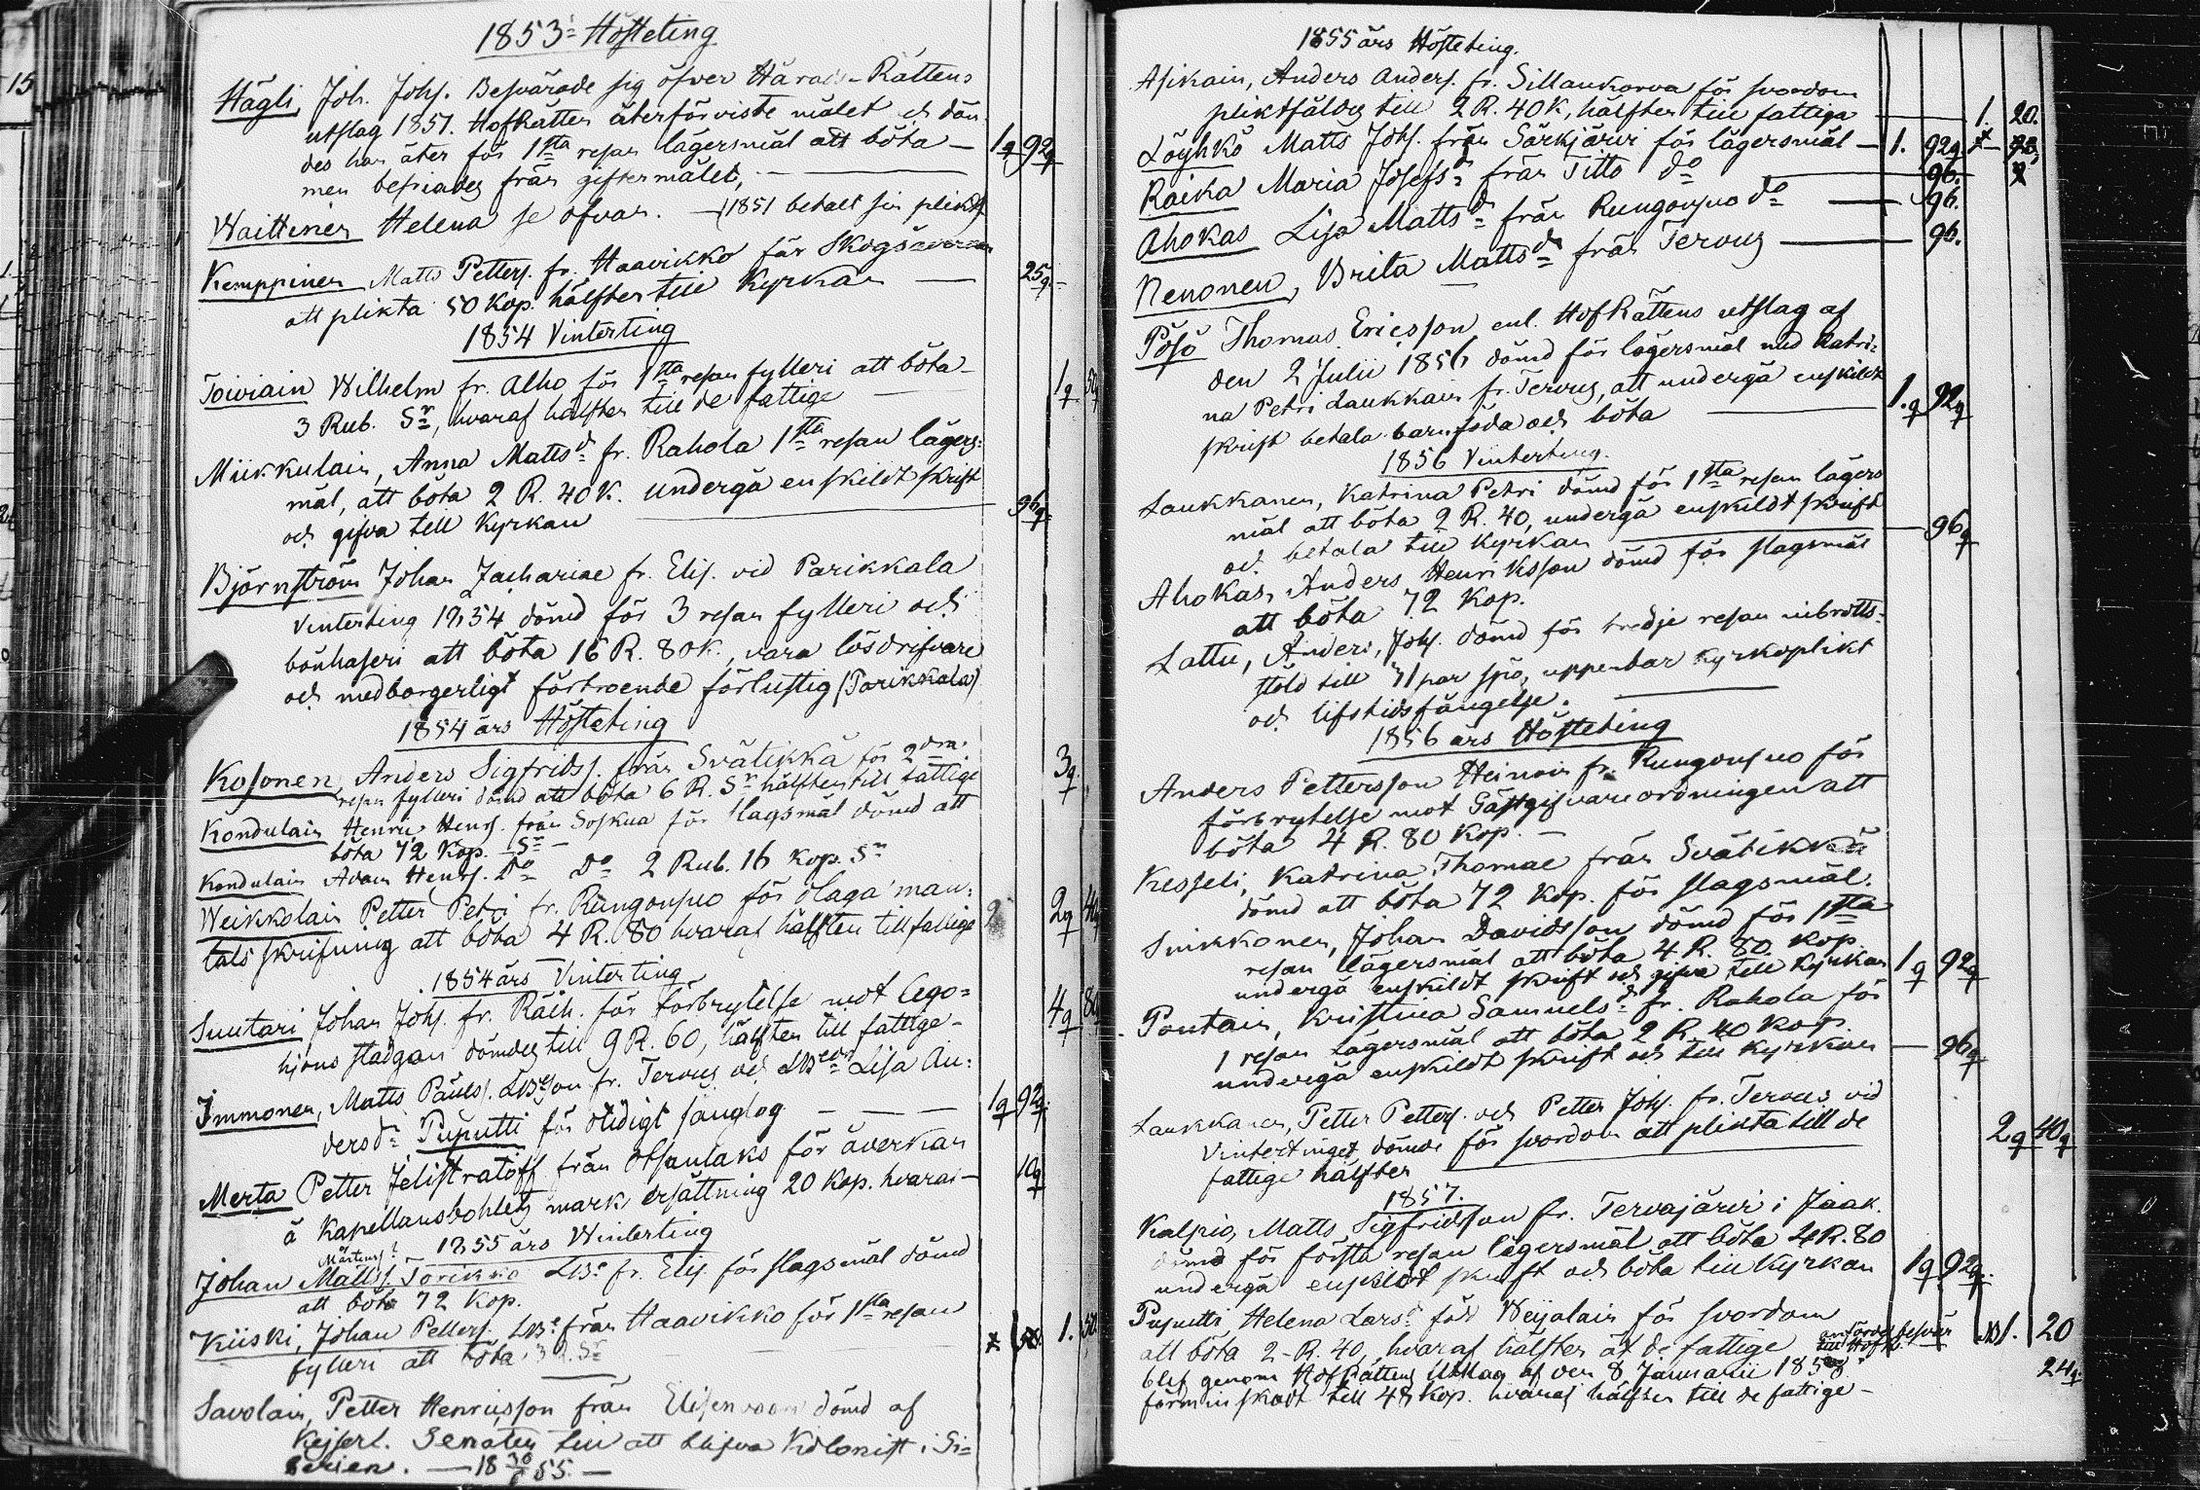 1853 Höfteting
Hägli, Joh. Johs. Besvärade sig öfver Härads-Rättens
utslag 1851. HofRätten återförviste målet och döm-
des han åter för 1sta resan lägersmål att böta — 1 92
men befriades från giftermålet,
Waittinen Helena se ofvan. — (1851 betalt sin plikt)
Kemppinen Matts Petters. fr. Haavikko för Skogsåverkan
att plikta 50 Kop. hälften till Kyrkan — 25
1854 Vinterting
Toiviain Wilhelm fr. Alho för 1sta resan fylleri att böta
3 Rub. Sr, hvaraf hälften till de fattige — 1 50
Miikkulain, Anna Mattsd. fr. Rahola 1sta resan lägers-
mål, att böta 2 R. 40 K. undergå enskildt skrift
och gifva till Kyrkan — 96
Björnström Johan Zachariae fr. Elis. vid Parikkala
Vinterting 1854 dömd för 3 resan fylleri och
bönhaseri att böta 16 R. 80 k., vara lösdrifvare
och medborgerligt förtroende förlustig (Parikkala)
1854 års Höfteting
Kosonen, Anders Sigfrids. från Svätikkä för 2dra
resan fylleri dömd att böta 6 R. Sr hälften till fattige 3
Kondulain Henric Henrs. från Soskua för slagsmål dömd att
böta 72 Kop. Sr —
Kondulain Adam Henrs. Do Do 2 Rub. 16 Kop. Sr
Weikkolain Petter Petri fr. Rungonsuo för olaga man-
tals skrifning att böta 4 R. 80 hvaraf hälften till fattige 2 40
1854 års Vinterting
Suutari Johan Johs. fr. Räih. för förbrytelse mot Lego-
hjons stadgan dömdes till 9 R. 60, hälften till fattige — 4 80
Immonen, Matts Påuls. LBeson fr. Tervus och LBeds Lisa An-
dersd. Puputti för otidigt sänglag — — — 1 92
Merta Petter Jelistratoff från Otsanlaks för åverkan
å Kapellansbohlets mark ersättning 20 Kop. hvaraf — 10
1855 års Winterting
Mårtens?
Johan Matts. Torikka LBe fr. Elis. för slagsmål dömd
att böta 72 Kop.
Kiiski, Johan Petters. LBe från Haavikko för 1sta resan
fylleri att böta 3 R. Sr 1. 50
Savolain, Petter Henricsson från Elisenvaara dömd af
Kejserl. Senaten till att blifva Kolonist i Si-
berien. — 18 30/6 55. —
1855 års Höfteting.
Asikain, Anders Anders. fr. Sillankorva för svordom
pliktfäldes till 2 R. 40 K, hälften till fattiga — 1. 20.
Löyhkö Matts Johs. från Särkjärvi för lägersmål — 1. 92
Raika Maria Josefsd. från Titto do — 96.
Ahokas Lisa Mattsd. från Rungonsuo do — 96.
Nenonen, Brita Mattsd. från Tervus — 96.
Pösö Thomas Ericsson enl. HofRättens utslag af
den 2 Julii 1856 dömd för lägersmål med Katri-
na Petri Laukkain fr. Tervus, att undergå enskildt
skrift betala barnföda och böta — 1. 92
1856 Vinterting.
Laukkanen, Katrina Petri dömd för 1sta resan lägers
mål att böta 2 R. 40, undergå enskildt skrift
och betala till Kyrkan — 96
Ahokas, Anders Henriksson dömd för slagsmål
att böta 72 Kop.
Lattu, Anders, Johs. dömd för tredje resan inbrotts-
stöld till 31 par spö, uppenbar Kyrkoplikt
och lifstidsfängelse.
1856 års Höfteting
Anders Pettersson Heinoin fr. Rungonsuo för
förbrytelse mot Gästgifvare ordningen att
böta 4 R. 80 Kop. —
Kesseli, Katrina Thomae från Svätikkä
dömd att böta 72 Kop. för slagsmål.
Sinkkonen, Johan Davidsson dömd för 1sta
resan lägersmål att böta 4 R. 80 Kop.
undergå enskildt skrift och gifva till Kyrkan 1 92
Pontain, Kristina Samuelsd. fr. Rahola för
1 resan Lägersmål att böta 2 R. 40 Kop.
undergå enskildt skrift och till Kyrkan — 96
Laukkanen, Petter Petters. och Petter Johs. fr. Tervus vid
Vintertinget dömde för svordom att plikta till de
fattige hälften 2 40
1857.
Kalpio, Matts Sigfridsson fr. Tervajärvi i Jaak.
dömd för första resan lägersmål att böta 4 R. 80
undergå enskildt skrift och böta till Kyrkan 1 92
Puputti Helena Larsd. född Weijalain för svordom
att böta 2 R. 40, hvaraf hälften åt de fattige anförde besvär till HofR. 1. 20
blef genom HofRättens Utslag af den 8 Januarii 1858
förminskadt till 48 Kop. hvaraf hälften till de fattige — 24